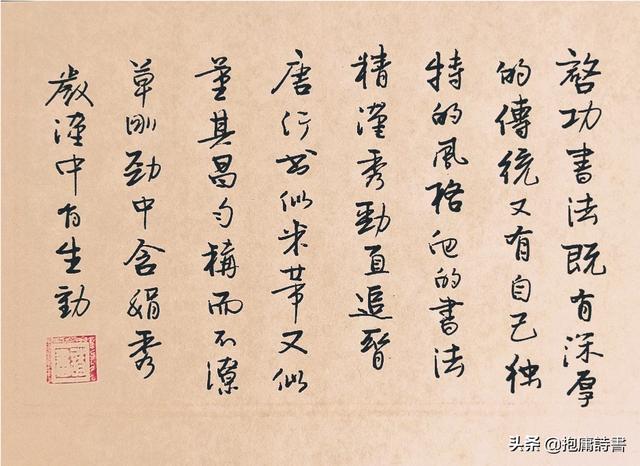 啓功書法既有深厚
的傳統又有自己独
特的風格他的書法
精謹秀勁直追晉
唐行书似米芾又似
董其昌勻稱而不潦
草剛勁中含娟秀
嚴謹中有生動
头条 @抱庸詩書